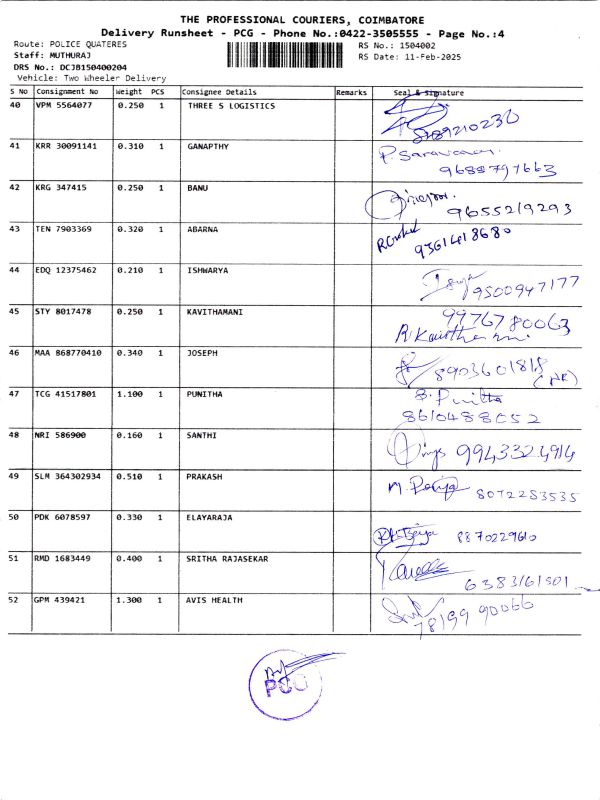 THE PROFESSIONAL COURIERS, COIMBATORE
Delivery Runsheet - PCG - Phone No.:0422-3505555 - Page No.:4
Route: POLICE QUATERES RS No.: 1504002
Staff: MUTHURAJ RS Date: 11-Feb-2025
DRS No.: DCJB150400204
Vehicle: Two Wheeler Delivery
S No Consignment No Weight PCS Consignee Details Remarks Seal & Signature
40 VPM 5564077 0.250 1 THREE S LOGISTICS
41 KRR 30091141 0.310 1 GANAPTHY P. Saravanan
9688797663
42 KRG 347415 0.250 1 BANU 9655219293
43 TEN 7903369 0.320 1 ABARNA 9361418680
44 EDQ 12375462 0.210 1 ISHWARYA 9500947177
45 STY 8017478 0.250 1 KAVITHAMANI 9976780063
46 MAA 868770410 0.340 1 JOSEPH 8903601818
47 TCG 41517801 1.100 1 PUNITHA B. Punitha
8610488052
48 NRI 586900 0.160 1 SANTHI 9943324914
49 SLM 364302934 0.510 1 PRAKASH 8072283535
50 PDK 6078597 0.330 1 ELAYARAJA 8870229610
51 RMD 1683449 0.400 1 SRITHA RAJASEKAR 6383161501
52 GPM 439421 1.300 1 AVIS HEALTH 78199 90066
PCG